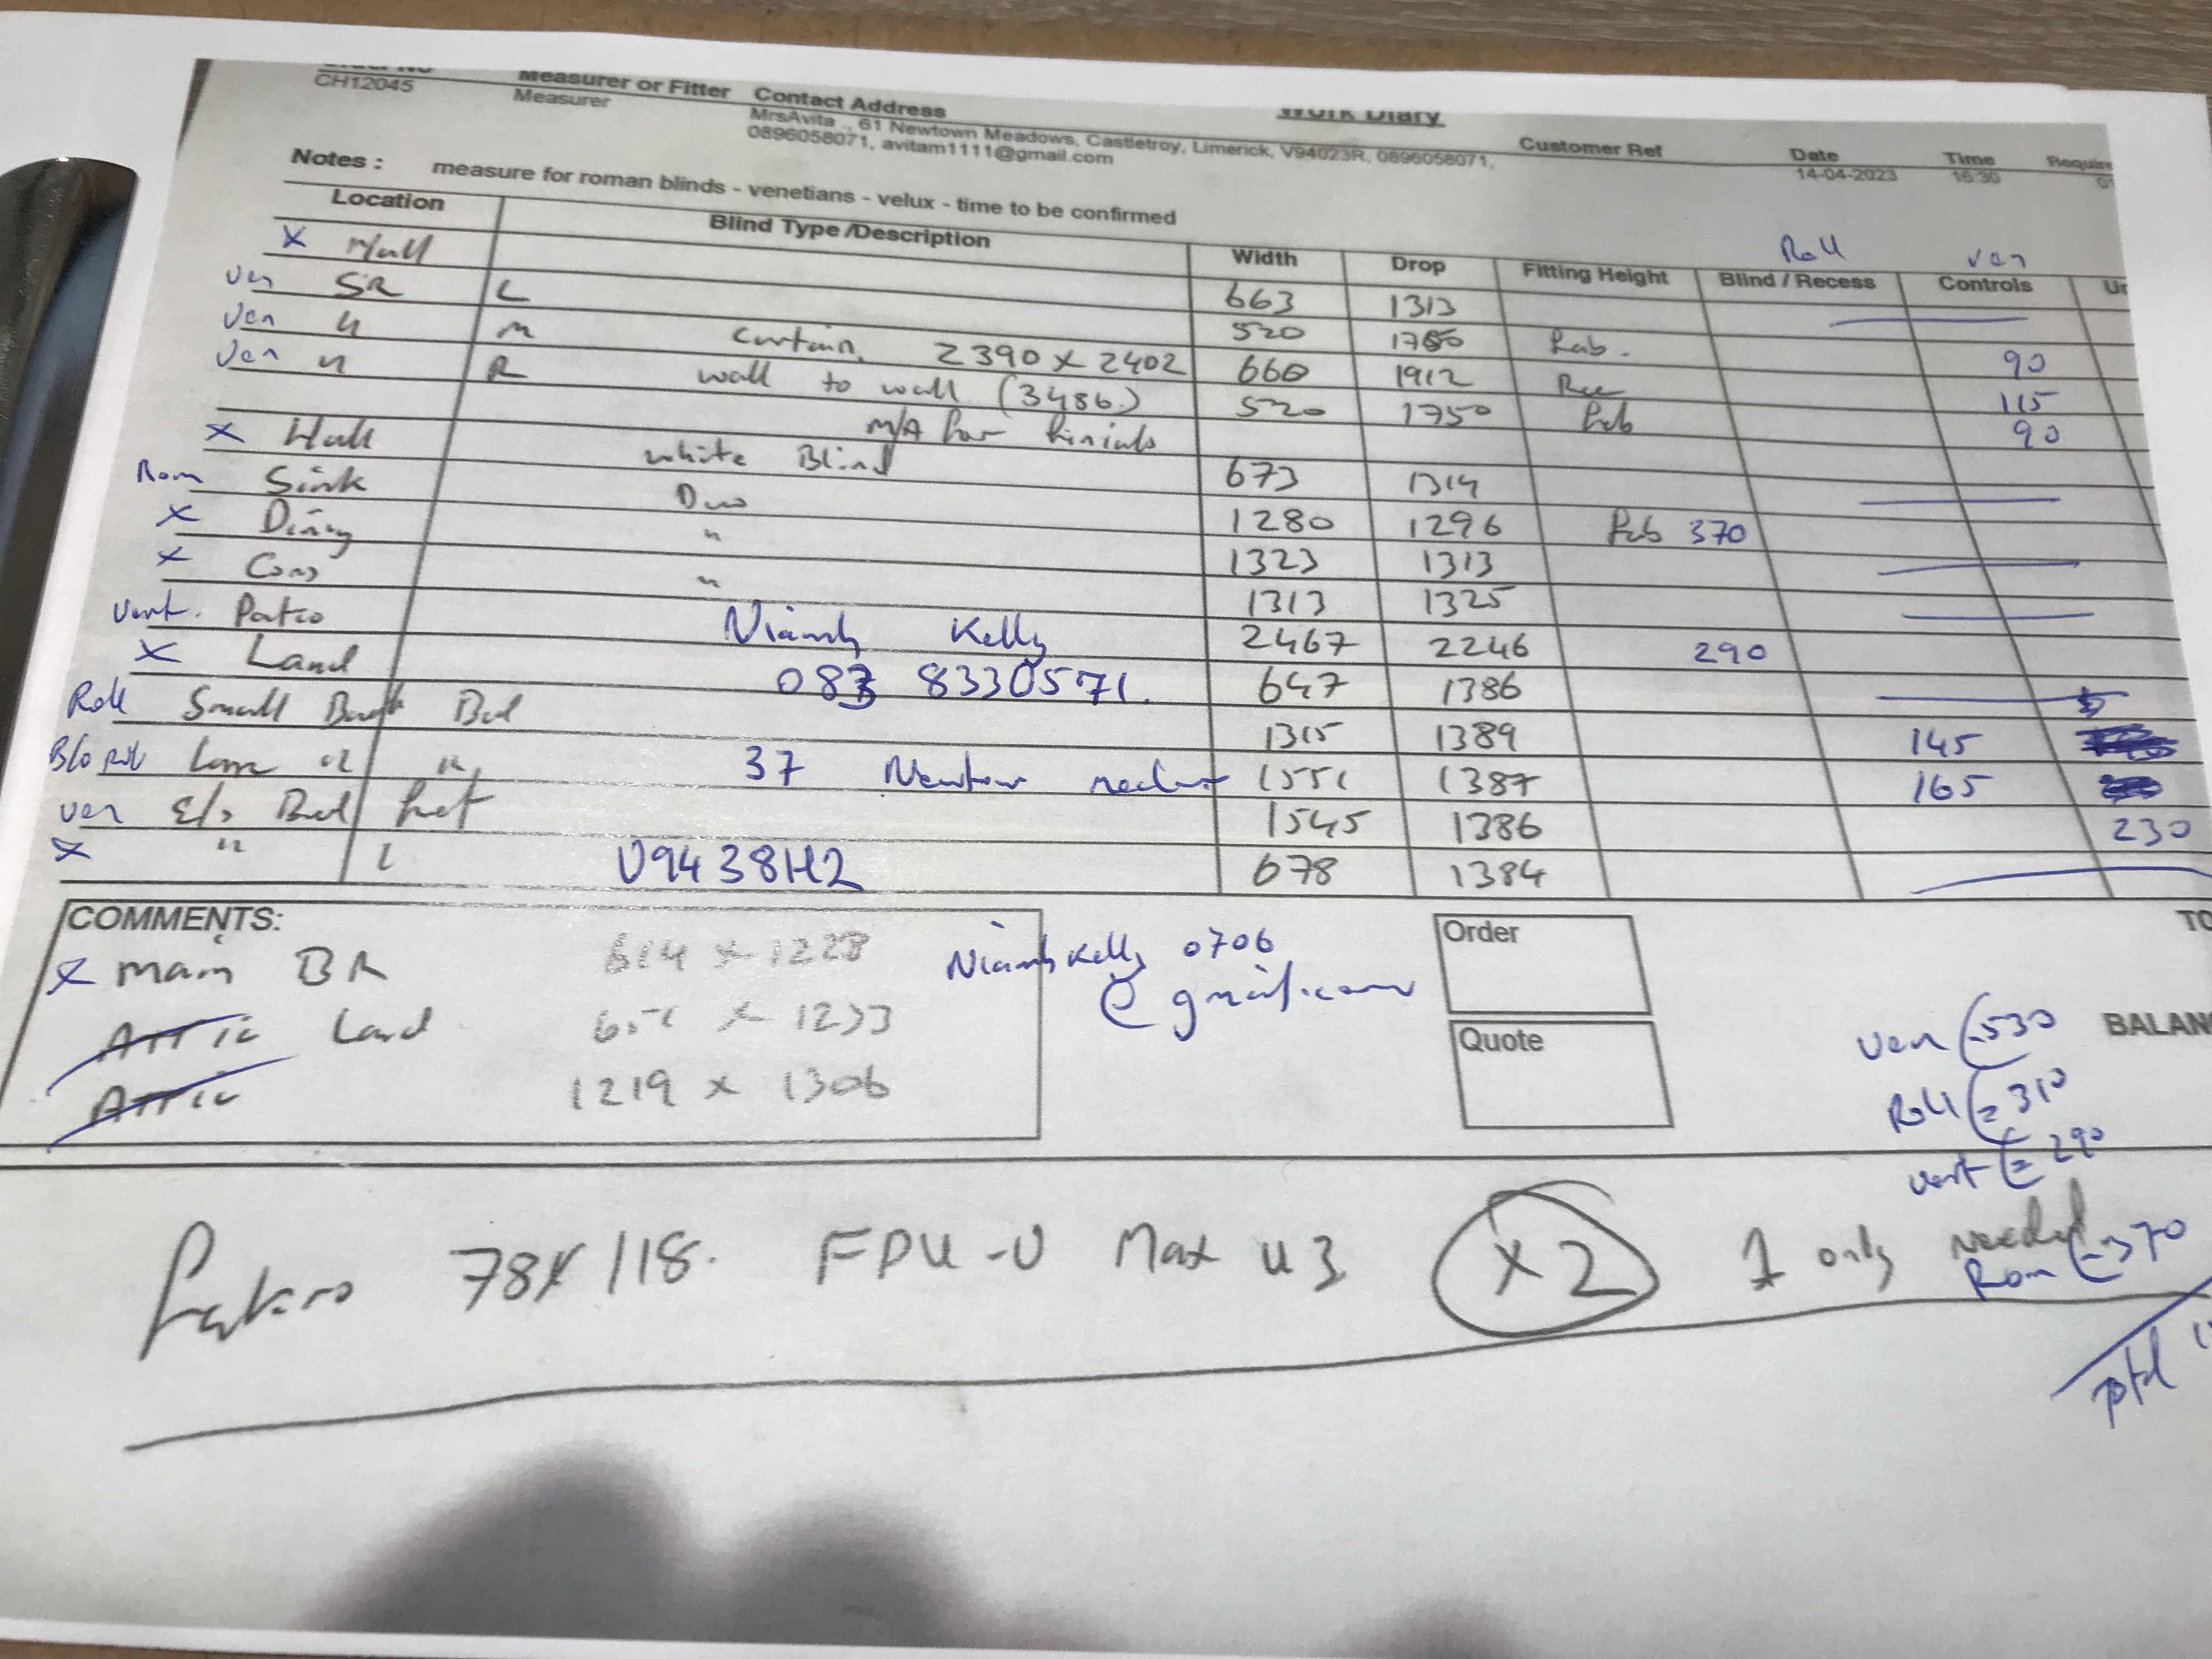 Work Diary
Order No Measurer or Fitter Contact Address Customer Ref Date Time
CH12045 Measurer MrsAvita ., 61 Newtown Meadows, Castletroy, Limerick, V94023R, 0896058071, 14-04-2023 16:30
0896058071, avitam1111@gmail.com
Notes : measure for roman blinds - venetians - velux - time to be confirmed
Roll ven
Location Blind Type /Description Width Drop Fitting Height Blind / Recess Controls
x 663 1313
ven SR L 520 1750 Fab. 90
ven " M curtain. 2390 x 2402 660 1912 Rec 115
ven " R wall to wall (3486) 520 1750 Fab 90
M/A for finials
x Hall white Blind 673 1314
Rom Sink Duo 1280 1296 Fab 370
x Dining " 1323 1313
x Cons " 1313 1325
vert. Patio Niamh Kelly 2467 2246 290
x Land 083 8330571. 647 1386
Roll Small Back Bed 1315 1389 145
B/o Roll " " 37 1551 1387 165
ven E/s Bed 1545 1386 230
x " L V9438H2 678 1384
COMMENTS:
x main BR 614 x 1228
Attic Land x 1233
Attic 1219 x 1306
NiamhKelly 0706
@ gmail.com
Order
Quote
ven = 530
Roll = 310
vert = 290
Rom = 370
Total
Fakro 78x118. FDU-V Max U3 x2 1 only needed